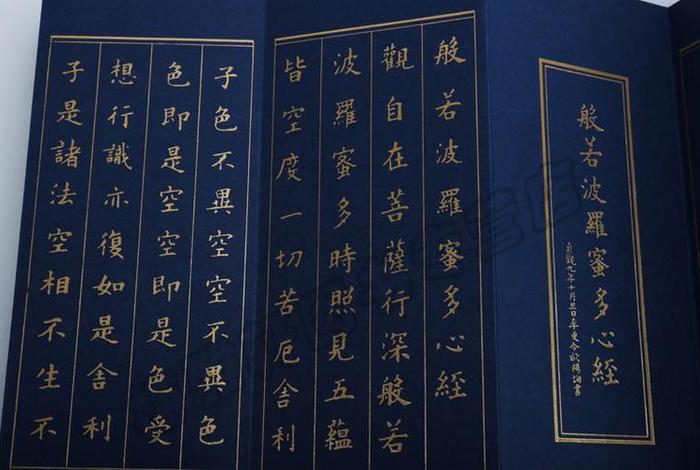 般若波羅蜜多心經
貞觀九年十月旦日率更令歐陽詢書
般若波羅蜜多心經
觀自在菩薩行深般若
波羅蜜多時照見五蘊
皆空度一切苦厄舍利
子色不異空空不異色
色即是空空即是色受
想行識亦復如是舍利
子是諸法空相不生不